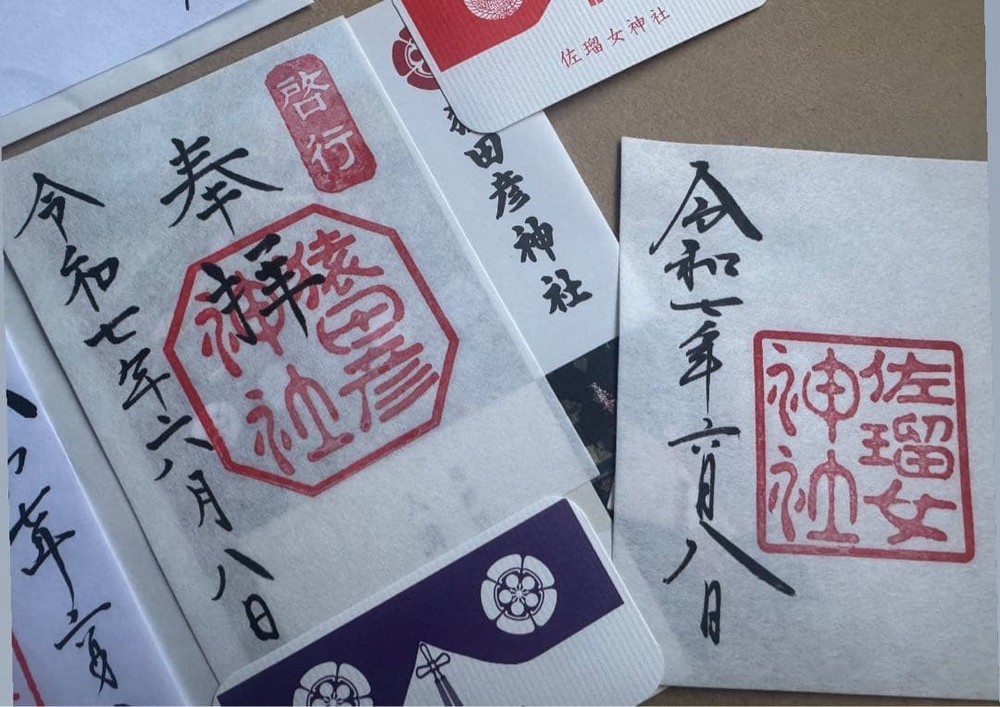 佐瑠女神社
猿田彦神社
啓行
奉拝
猿田彦
神社
令和七年六月八日
佐瑠女
神社
令和七年六月八日
七年六月